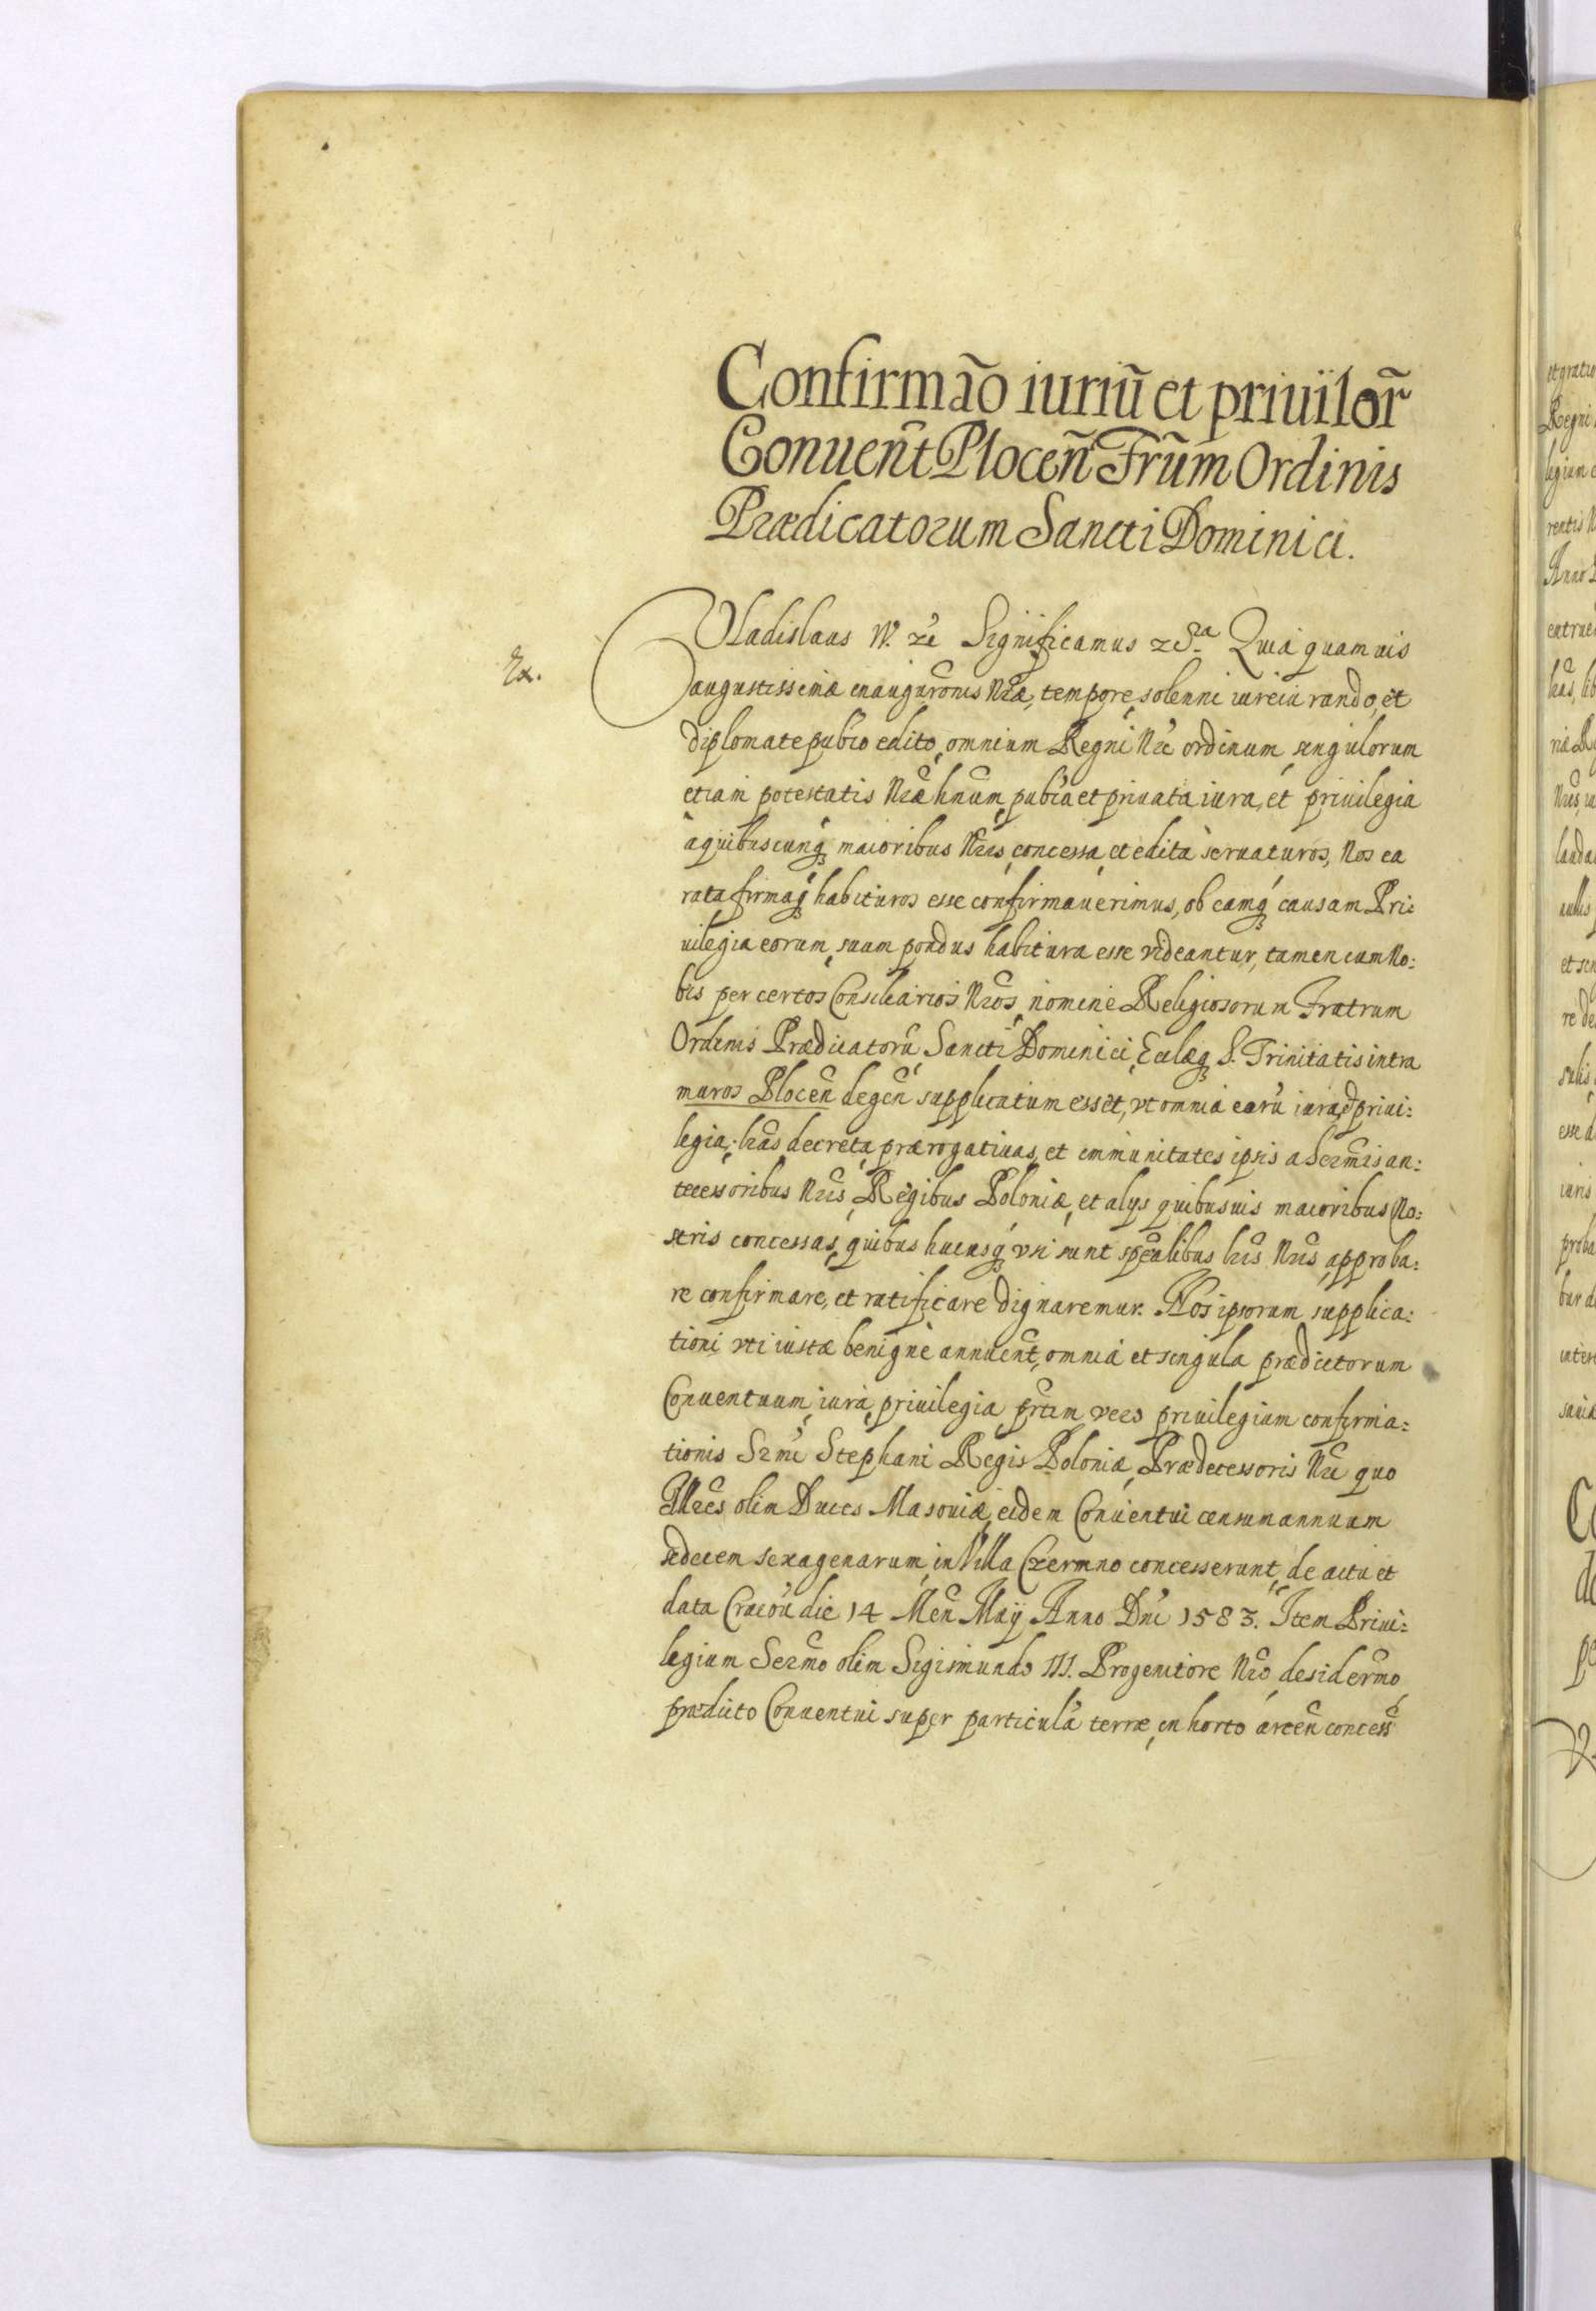 Confirmão iuriũ et priuilor̃
Conuenт̃ Plocen̄ Fr̃um Ordinis
Prædicatorum Sancti Dominici.
Vladislaus IV. etc̃ Significamus Quia quamuis
Ex.
augustissimæ inaugur̃onis Nr̃æ, tempore solenni iureiurando, et
diplomate publ̃co edito, omnium Regni Nr̃i ordinum, singulorum
etiam potestatis Nr̃æ hn̄um, publ̃ca et priuata iura, et priuilegia
à quibuscunq; maioribus Nr̃is, concessa, et edita seruaturos, Nos ea
rata firmaq; habituros esse confirmauerimus, ob eamq; causam Pri:
uilegia eorum, suum pondus habitura esse videantur, tamen cum No:
bis per certos Consiliarios Nr̃os, nomine Religiosorum Fratrum
Ordinis Prædicatorũ, Sancti Dominici, Ecclæq; S. Trinitatis intra
muros Plocen̄ degen̄ supplicatum esset, vt omnia earũ iura, et priui:
legia, lr̃as, decreta, prærogatiuas, et immunitates ipsis a Ser̃mis an:
tecessoribus Nr̃is, Regibus Poloniæ, et alys quibusuis maioribus No:
stris concessas, quibus hucusq; vsi sunt spẽalibus lr̃is Nr̃is, approba:
re confirmare, et ratificare dignaremur. Nos ipsorum supplica:
tioni vti iustæ benigne annuen̄t, omnia et singula prædictorum
Conuentuum, iura, priuilegia, pr̃tim vero priuilegium confirma:
tionis Sr̃mi Stephani Regis Poloniæ, Prædecessoris Nr̃i quo
Illr̃es olim Duces Masouiæ, eidem Conuentui censum annuum
sedecem sexagenarum, in Villa Czermno concesserunt, de actu et
data Cracoũ die 14 Men̄ Maÿ Anno Dn̄i 1583. Item Priui:
legium Ser̃mo olim Sigismundo III. Progenitore Nr̃o, desider̃mo
prædicto Conuentui super particulã terræ, in horto arcen̄ concess̃